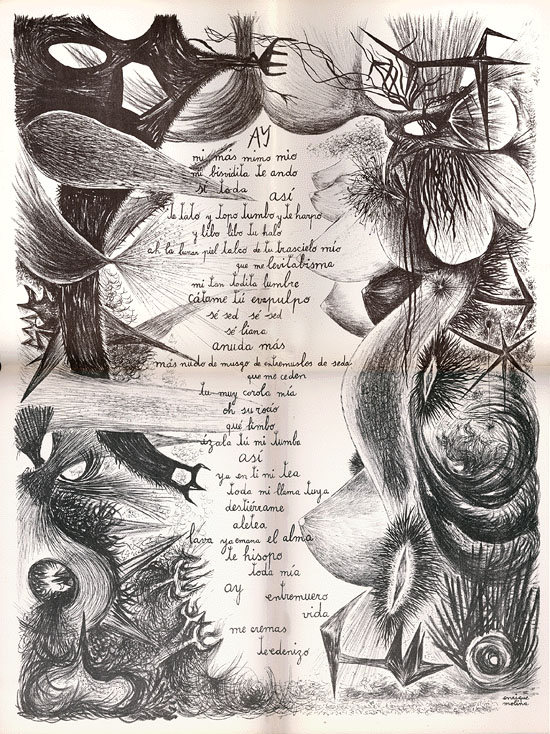 AY
mi más mimo mio
mi bisvidita te ando
sí toda
así
te tato y topo tumbo y te harpo
y libo libo tu halo
ah la piel calco de tu trascielo mío
que me levitabisma
mi tan todita lumbre
cátame tú evapulpo
sé sed sé sed
sé liana
anuda más
más nudo de musgo de entremuslos de seda
que me ceden
tu muy corola mía
oh su rocío
qué limbo
ízala tú mi tumba
así
ya en ti mi tea
toda mi llama tuya
destiérrame
aletea
lava ya emana el alma
te hisopo
toda mía
ay
entremuero
vida
me cremas
te edenizo
enrique
molina